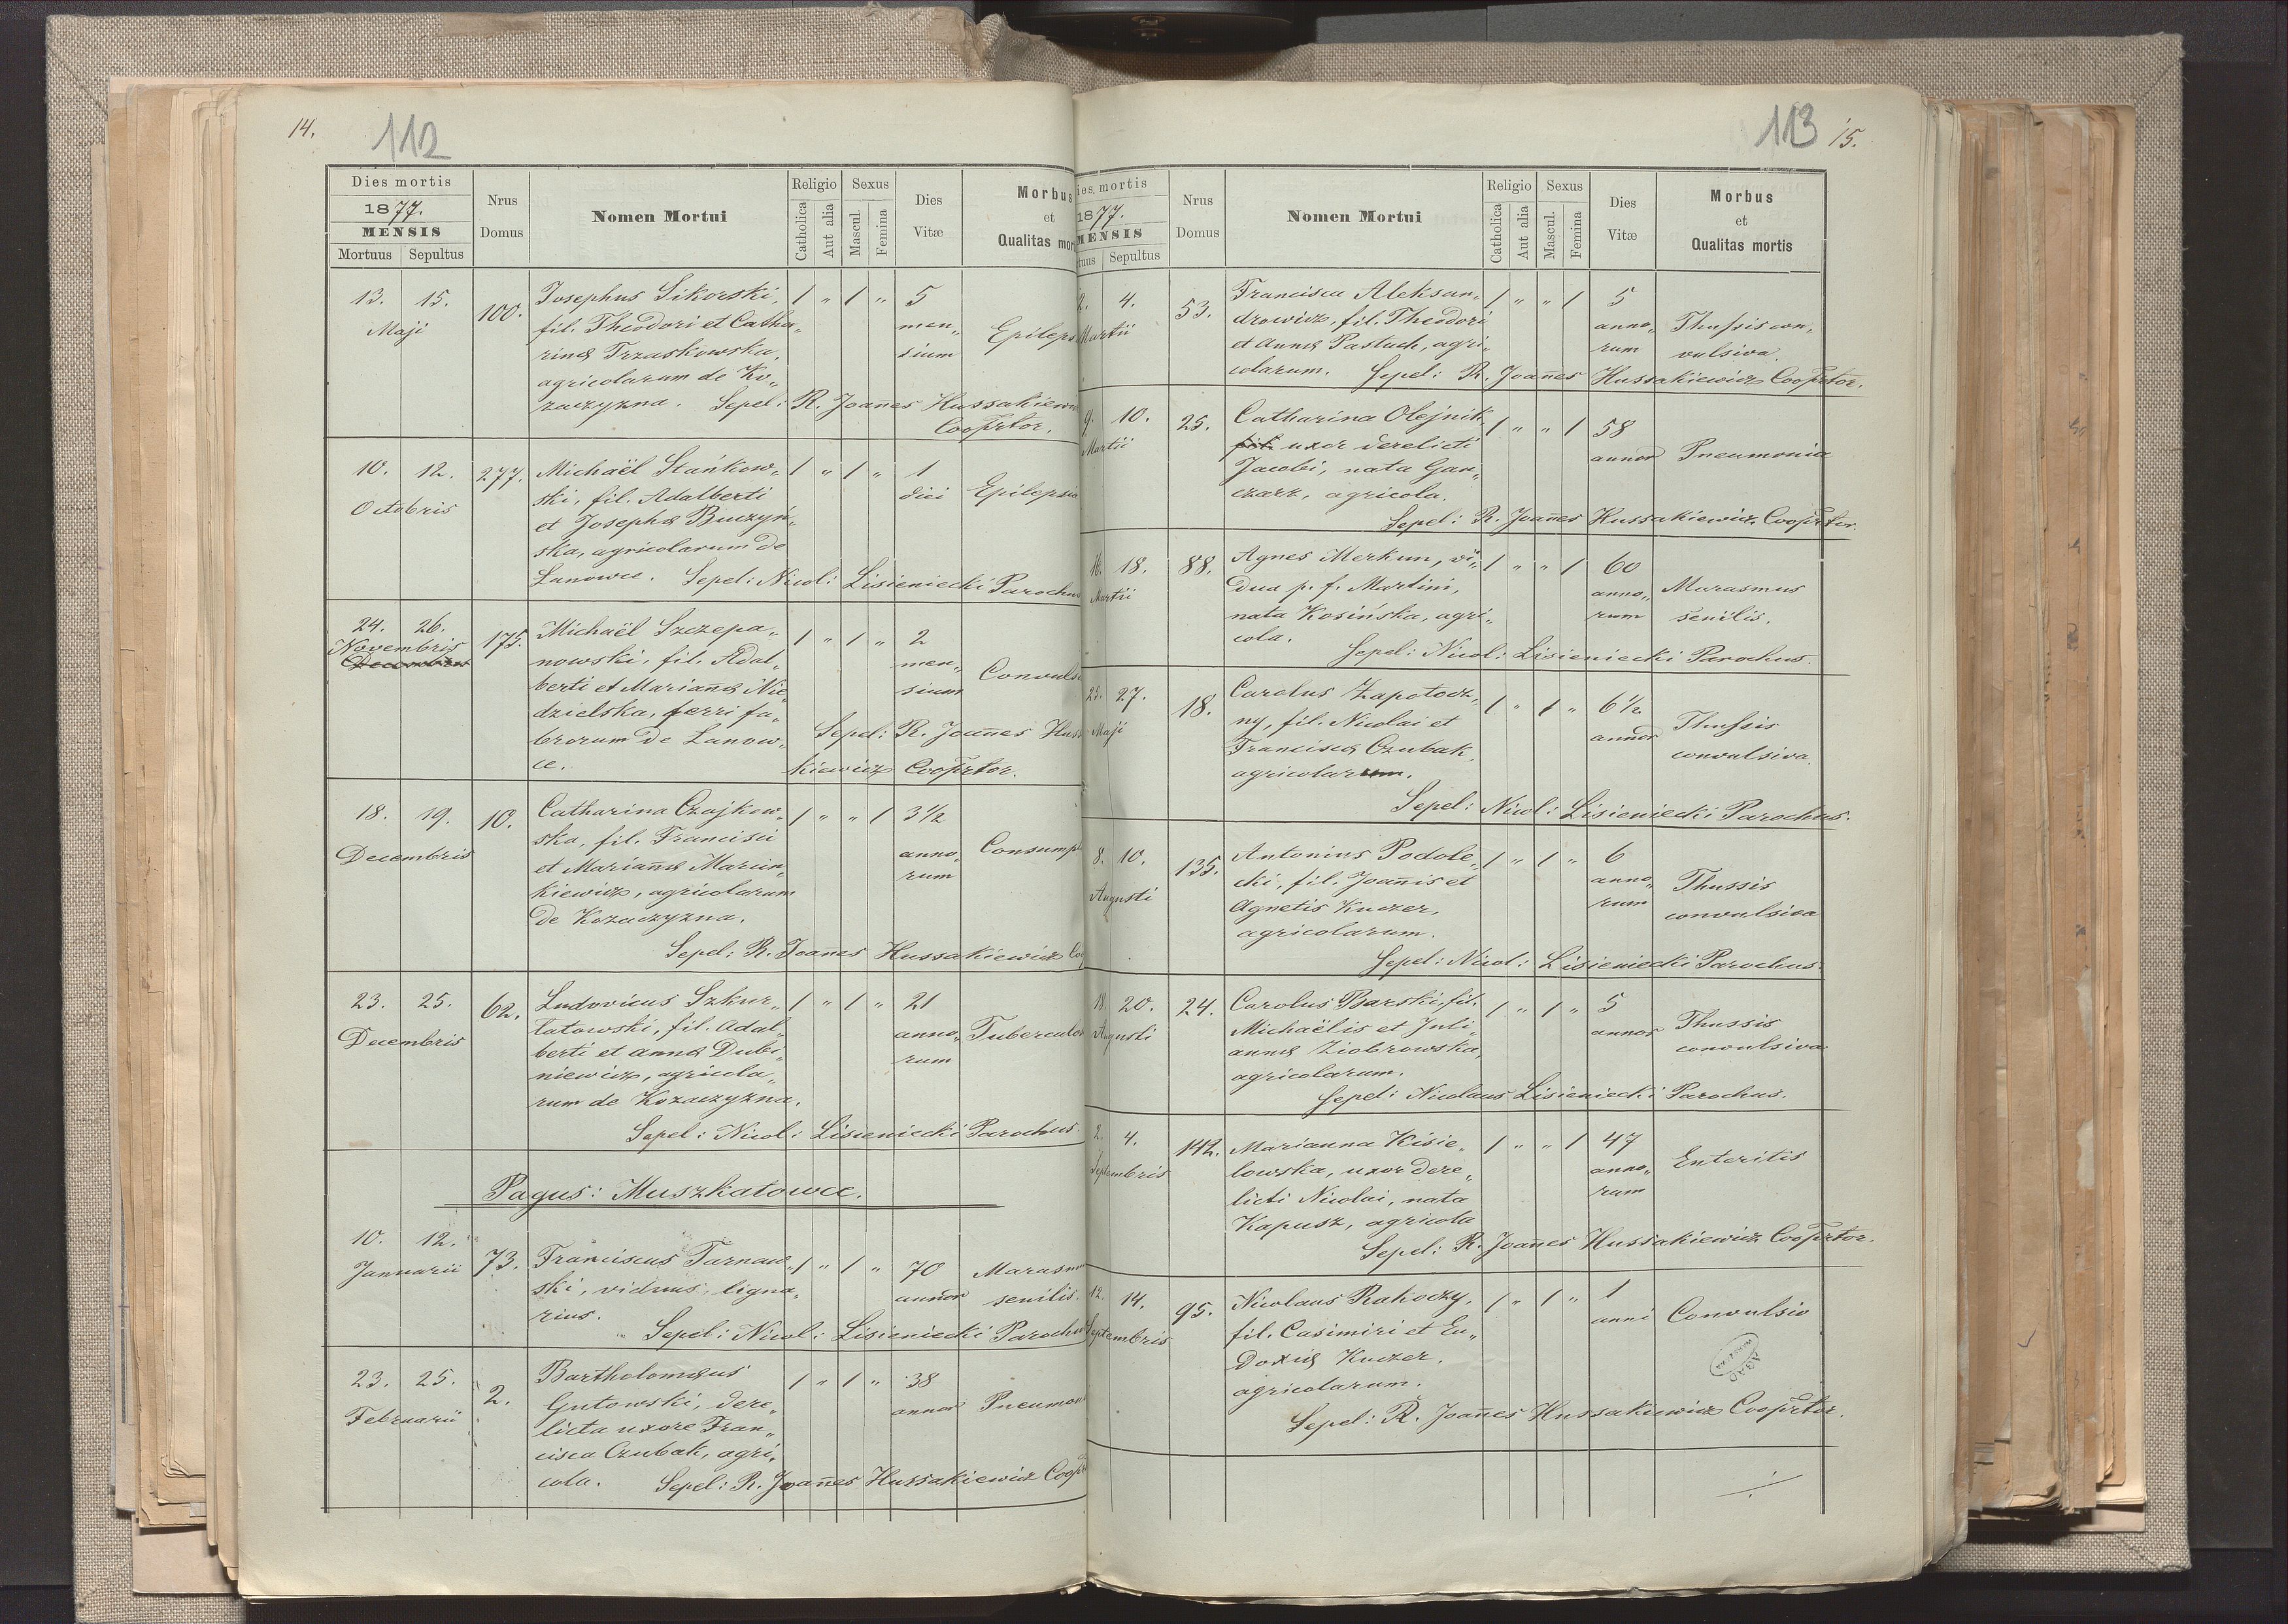 14.
112
Dies mortis
1877.
MENSIS
Mortuus Sepultus
Nrus Domus
Nomen Mortui
Religio
Catholica
Aut alia
Sexus
Mascul.
Femina
Dies Vitæ
Morbus
et
Qualitas mor
13. 15.
Maji
100.
Josephus Sikorski,
fil. Theodori et Catha„
rinæ Trzaskowska,
agricolarum de Ko„
zaczyzna. Sepel: R. Joañes Hussakiewi
Cooprtor.
1 „ 1 „
5
men„
sium
Epileps
10. 12.
Octobris
277.
Michaël Stańkow„
ski, fil. Adalberti
et Josephæ Buczyń„
ska, agricolarum de
Lanowce. Sepel: Nicol: Lisieniecki Parochus
1 „ 1 „
1
diei
Epilepsia
24. 26.
Novembris
Decembris
175.
Michaël Szczepa„
nowski, fil. Adal„
berti et Mariañæ Nie„
dzielska, ferri fa„
brorum de Lanow„
ce.
Sepel: R. Joañes Huss
kiewicz Cooprtor.
1 „ 1 „
2
men„
sium
Convulsi
18. 19.
Decembris
10.
Catharina Czajkow„
ska, fil. Francisci
et Mariañæ Marcin„
kiewicz, agricolarum
de Kozaczyzna.
Sepel: R. Joañes Hussakiewicz Co
1 „ „ 1
3 1/2
anno„
rum
Consump
23. 25.
Decembris
62.
Ludovicus Szkur„
latowski, fil. Adal„
berti et Annæ Dubi„
niewicz, agricola„
rum de Kozaczyzna.
Sepel: Nicol: Lisieniecki Parochus.
1 „ 1 „
21
anno„
rum
Tuberculo
Pagus: Muszkatowce.
10. 12.
Januarii
73.
Franciscus Tarnaw„
ski, viduus, ligna„
rius.
Sepel: Nicol: Lisieniecki Parochus
1 „ 1 „
70
annor
Marasm
senilis.
23. 25.
Februarii
2.
Bartholomæus
Gutowski, dere„
licta uxore Fran„
cisca Czubak, agri„
cola. Sepel: R. Joañes Hussakiewicz Coop
1 „ 1 „
38
annor
Pneumon
113
15.
ies mortis
1877.
MENSIS
tuus Sepultus
Nrus Domus
Nomen Mortui
Religio
Catholica
Aut alia
Sexus
Mascul.
Femina
Dies Vitæ
Morbus
et
Qualitas mortis
2. 4.
Martii
53.
Francisca Aleksan„
drowicz, fil. Theodori
et Annæ Pastuch, agri„
colarum. Sepel: R. Joañes Hussakiewicz Cooprtor.
1 „ „ 1
5
anno„
rum
Thussis con„
vulsiva.
9. 10.
Martii
25.
Catharina Olejnik,
fil. uxor derelicti
Jacobi, nata Gan„
czarz, agricola.
Sepel: R. Joañes Hussakiewicz Cooprtor.
1 „ „ 1
58
annor
Pneumonia
16. 18.
Martii
88.
Agnes Merkun, vi„
dua p. f. Martini,
nata Kosińska, agri„
cola.
Sepel: Nicol: Lisieniecki Parochus.
1 „ „ 1
60
anno„
rum
Marasmus
senilis.
25. 27.
Maji
18.
Carolus Zapotocz„
ny, fil. Nicolai et
Franciscæ Czubak,
agricolarum.
Sepel: Nicol: Lisieniecki Parochus.
1 „ 1 „
6 1/2
annor
Thussis
convulsiva.
8. 10.
Augusti
135.
Antonius Podole„
cki, fil. Joañis et
Agnetis Kuczer,
agricolarum.
Sepel: Nicol: Lisieniecki Parochus.
1 „ 1 „
6
anno„
rum
Thussis
convulsiva
18. 20.
Augusti
24.
Carolus Barski, fil.
Michaëlis et Juli„
annæ Ziobrowska,
agricolarum.
Sepel: Nicolaus Lisieniecki Parochus.
1 „ 1 „
5
annor
Thussis
convulsiva
2. 4.
Septembris
142.
Marianna Kisie„
lowska, uxor dere„
licti Nicolai, nata
Kapusz, agricola
Sepel: R. Joañes Hussakiewicz Cooprtor.
1 „ „ 1
47
anno„
rum
Enteritis
12. 14.
Septembris
95.
Nicolaus Rakoczy,
fil. Casimiri et Eu„
doxiæ Kuczer,
agricolarum.
Sepel: R. Joañes Hussakiewicz Cooprtor.
1 „ 1 „
1
anni
Convulsio